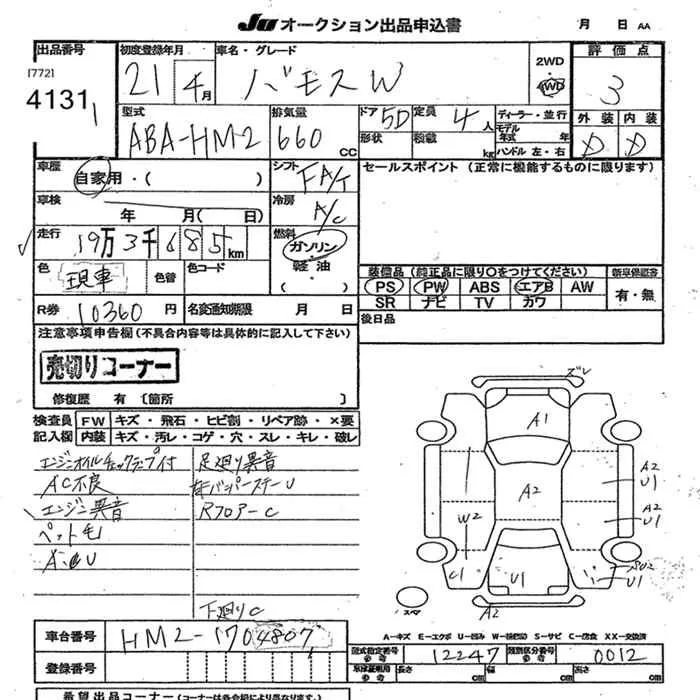 JU オークション出品申込書 月 日 AA
出品番号 初度登録年月 車名・グレード 2WD 評価点
[772]
4131 21 4月 バモスW 4WD 3
型式 排気量 ドア 5D 定員 4人 ディーラー・並行 外装 内装
ABA-HM2 660 CC 形状 積載 kg モデル年式 年 D D
ハンドル 左・右
車歴 自家用・( ) シフト FA/T セールスポイント (正常に機能するものに限ります)
車検 年 月( 日) 冷房 A/C
走行 19万3千685km 燃料 ガソリン・軽油
色 現車 色替 色コード
装備品 (純正品に限り○をつけてください) 新車保証書
PS PW ABS エアB AW 有・無
SR ナビ TV カワ
R券 10360円 名変通知期限 月 日 後日品
注意事項申告欄 (不具合内容等は具体的に記入して下さい)
売切りコーナー
修復歴 有 〔箇所 〕
検査員記入欄 FW キズ・飛石・ヒビ割・リペア跡・×要
内装 キズ・汚レ・コゲ・穴・スレ・キレ・破レ
足廻り異音
AC不良
エンジン異音 Rフロアー C
ペット毛
下廻りC
ズレ
A1
A2
A2
U1
A2
U1
W2
C1
U1
U1
A2
スペア
A-キズ E-エクボ U-凹み W-(補修跡) S-サビ C-腐食 XX-交換済
車台番号 HM2-1704807
登録番号
型式指定番号 参考 12247 類別区分番号 参考 0012
長さ cm 幅 cm 高さ cm
希望出品コーナー